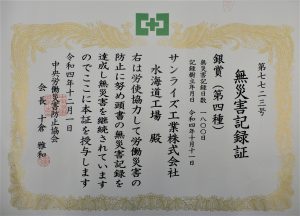 第七七二三号
無災害記録証
銀賞(第四種)
無災害記録日数 一八〇〇日
記録樹立年月日 令和四年十月十一日
サンライズ工業株式会社
水海道工場 殿
右は労使協力して労働災害の
防止に努め頭書の無災害記録を
達成し無災害を継続されています
のでここに本証を授与します
令和四年十二月一日
中央労働災害防止協会
会長 十倉 雅和